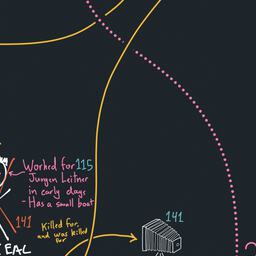 Worked for 115
Jurgen Leitner
in early days
- Has a small boat
141
141
Killed for,
and was killed
for
EAL